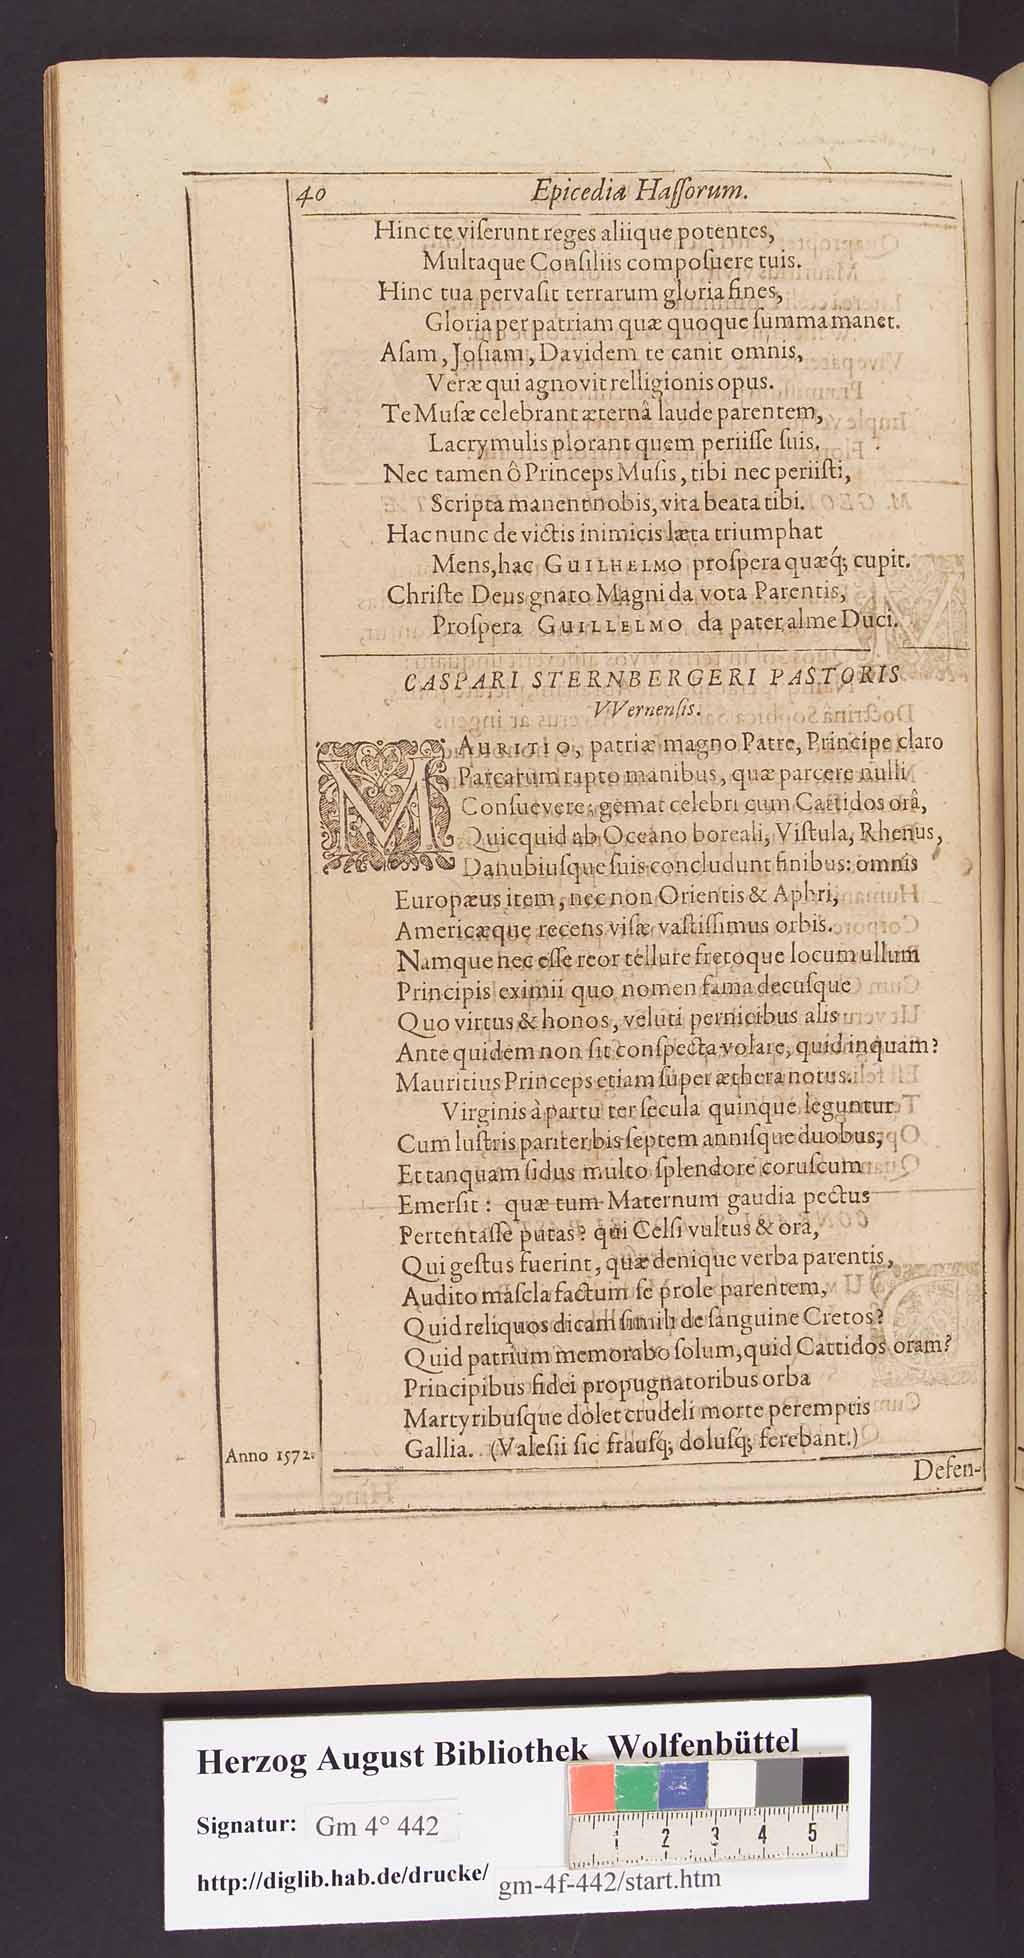 40 Epicedia Haſſorum.
Hinc te viſerunt reges aliique potentes,
Multaque Conſiliis compoſuere tuis.
Hinc tua pervaſit terrarum gloria fines,
Gloria per patriam quæ quoque ſumma manet.
Aſam, Joſiam, Davidem te canit omnis,
Veræ qui agnovit relligionis opus.
Te Muſæ celebrant æternâ laude parentem,
Lacrymulis plorant quem periiſſe ſuis.
Nec tamen ô Princeps Muſis, tibi nec periiſti,
Scripta manent nobis, vita beata tibi.
Hac nunc de victis inimicis læta triumphat
Mens, hac GUILHELMO proſpera quæq́; cupit.
Chriſte Deus gnato Magni da vota Parentis,
Proſpera GUILLELMO da pater alme Duci.
CASPARI STERNBERGERI PASTORIS
VVernenſis.
MAURITIO, patriæ magno Patre, Principe claro
Parcarum rapto manibus, quæ parcere nulli
Conſuevere: gemat celebri cum Cattidos orâ,
Quicquid ab Oceano boreali, Viſtula, Rhenus,
Danubiuſque ſuis concludunt finibus: omnis
Europæus item, nec non Orientis & Aphri,
Americæque recens viſæ vaſtiſſimus orbis.
Namque nec eſſe reor tellure fretoque locum ullum
Principis eximii quo nomen fama decuſque
Quo virtus & honos, veluti pernicibus alis
Ante quidem non ſit conſpecta volare, quid inquam?
Mauritius Princeps etiam ſuper æthera notus.
Virginis à partu ter ſecula quinque leguntur
Cum luſtris pariter bis ſeptem anniſque duobus,
Et tanquam ſidus multo ſplendore coruſcum
Emerſit: quæ tum Maternum gaudia pectus
Pertentaſſe putas? qui Celſi vultus & ora,
Qui geſtus fuerint, quæ denique verba parentis,
Audito maſcla factum ſe prole parentem,
Quid reliquos dicam ſimili de ſanguine Cretos?
Quid patrium memorabo ſolum, quid Cattidos oram?
Principibus fidei propugnatoribus orba
Martyribuſque dolet crudeli morte peremptis
Anno 1572. Gallia. (Valeſii ſic frauſq́; doluſq́; ferebant.)
Defen-
Herzog August Bibliothek Wolfenbüttel
Signatur: Gm 4° 442
http://diglib.hab.de/drucke/ gm-4f-442/start.htm
1 2 3 4 5